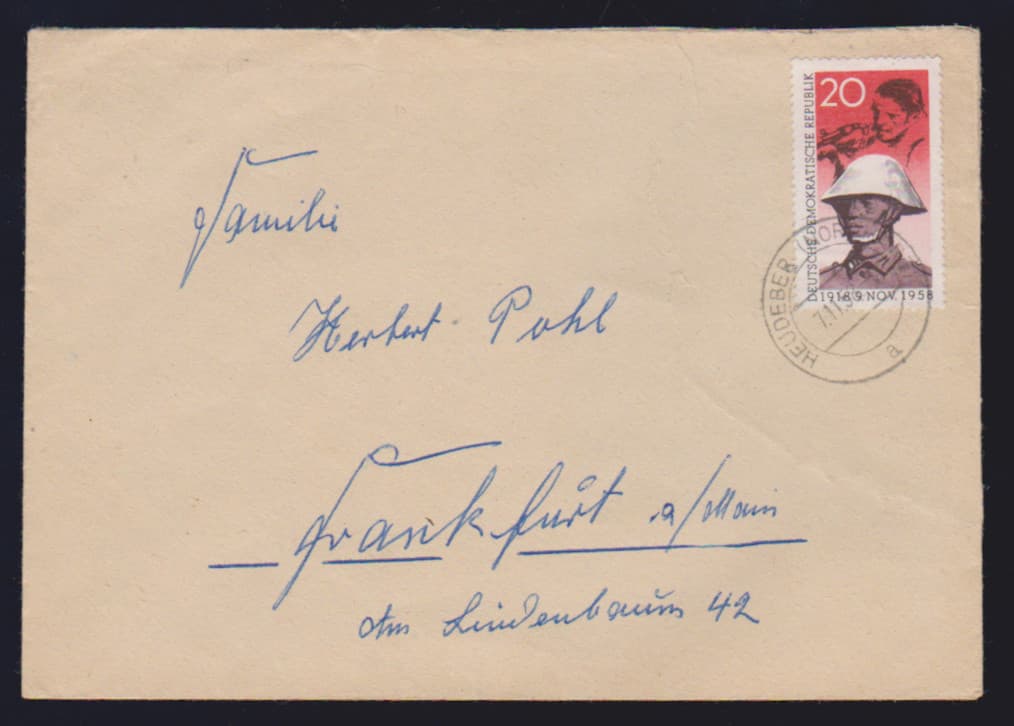 20
DEUTSCHE DEMOKRATISCHE REPUBLIK
1918 9. NOV. 1958
HEUDEBER
7.11.
a
Familie
Herbert Pohl
Frankfurt a/Main
Am Lindenbaum 42